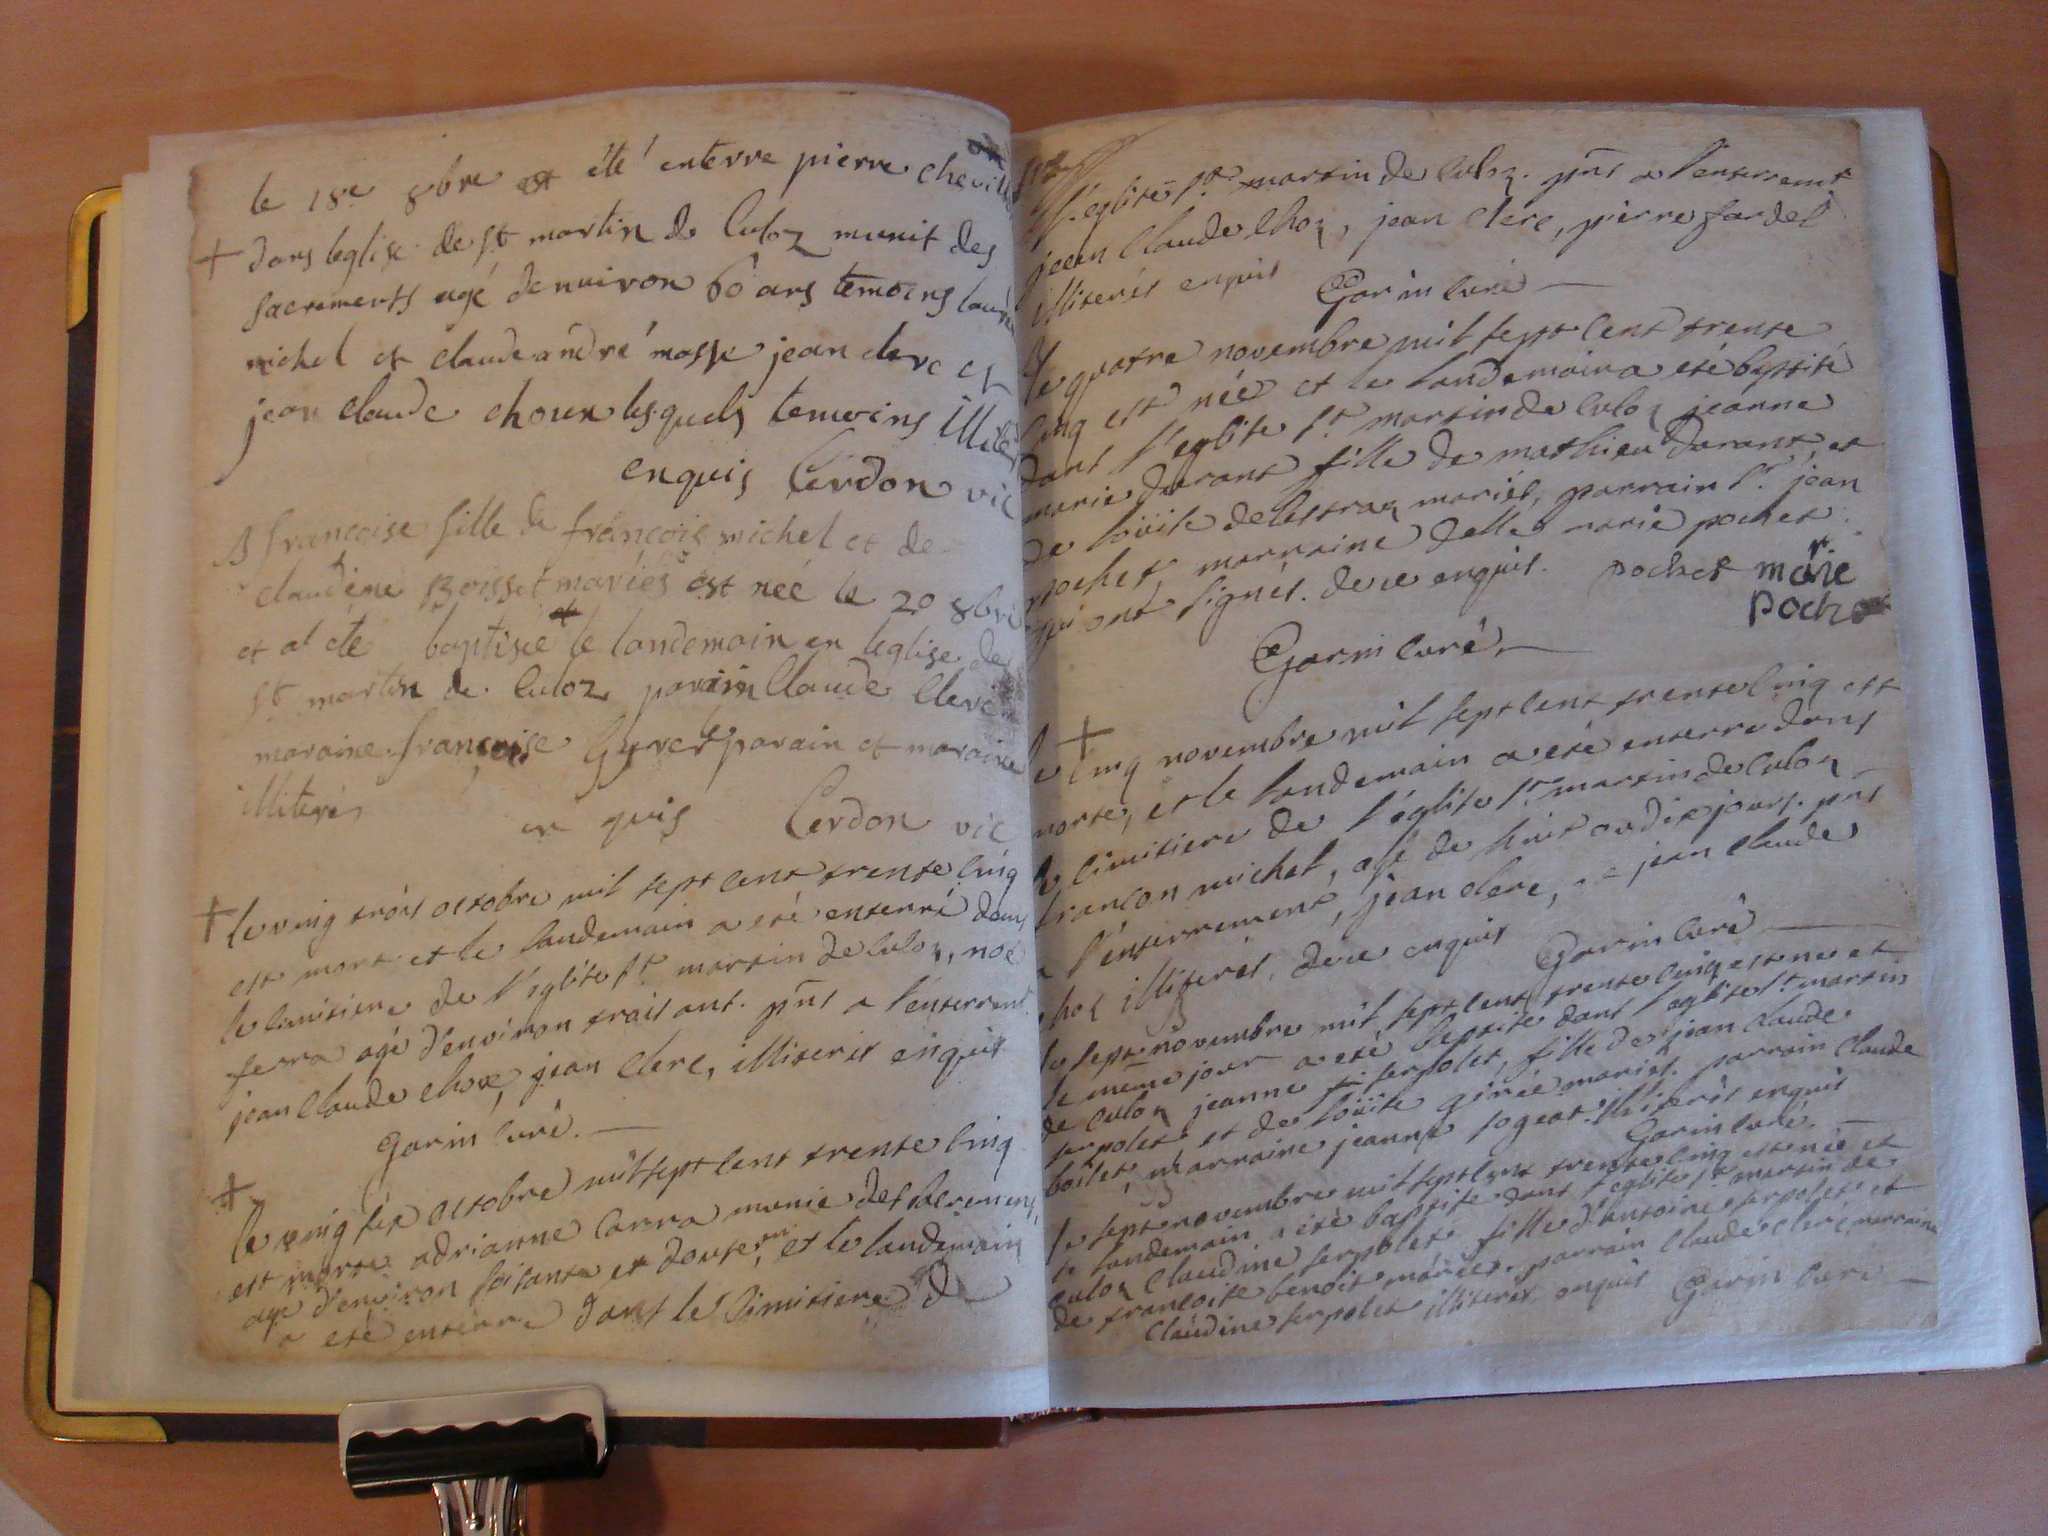 le 18e 8bre est été enterre pierre chevill
+ dans leglise de st martin de Culoz munit des
sacrements agé denuiron 60 ans temoins
michel et claude andré masse jean clerc et
jean claude choux lesquels temoins
enquis Cerdon vic
B francoise fille de francois michel et de
claudine Boisset mariés est néé le 20 8bre
et at été baptisée le landemain en leglise de
st martin de Culoz parain Claude Clerc
maraine francoise parain et maraine
illiterés enquis Cerdon vic
+ le ving trois octobre mil sept cent trente cinq
est mort et le landemain a eté enterré dans
le cimitiere de l'eglise st martin de culoz, noé
ferra agé d'environ trais ans. pnts a l'enterremt
jean claude choz, jean clerc, illiteres enquis
Garin curé.
+
le ving six octobre mil sept cent trente cinq
est morte adrianne carra munie des sacremens,
age d'environ soisante et douse ans, et le landemain
a eté enterre dans le cimitiere de
l'eglise st martin de culoz. pnts a l'enterremt
jean claude choz, jean clerc, pierre fardel
illiterés enquis Garin curé
le quatre novembre mil sept cent trente
cinq est née et le landemain a eté baptisé
dans l'eglise st martin de culoz jeanne
marie durant fille de mathieu durant, et
de louise delestraz mariés, parrain sr jean
pochet, marraine delle marie pochet
qui ont signés. de ce enquis. pochet marie
poche
Garin curé.
+
le cinq novembre mil sept cent trente cinq est
morte, et le landemain a eté enterre dans
le cimitiere de l'église st martin de culoz
michel, agé de huit ou dix jours. pnts
a l'enterrement, jean clerc, jean claude
choz illiterés, de ce enquis Garin curé
le sept novembre mil sept cent trente cinq est ne et
le même jour a eté baptise dans l'eglise st martin
de culoz jeanne serpolet, fille de jean claude
serpolet et de louise girée mariés. parrain claude
boilet, marraine jeanne sogeat. illiterés enquis
Garin curé.
le sept novembre mil sept cent trente cinq est née et
le landemain a eté baptise dans l'eglise st martin de
culoz claudine serpolet fille d'antoine serpolet et
de francoise benoit mariés. parrain claude clerc, marraine
claudine serpolet illiteres enquis Garin curé